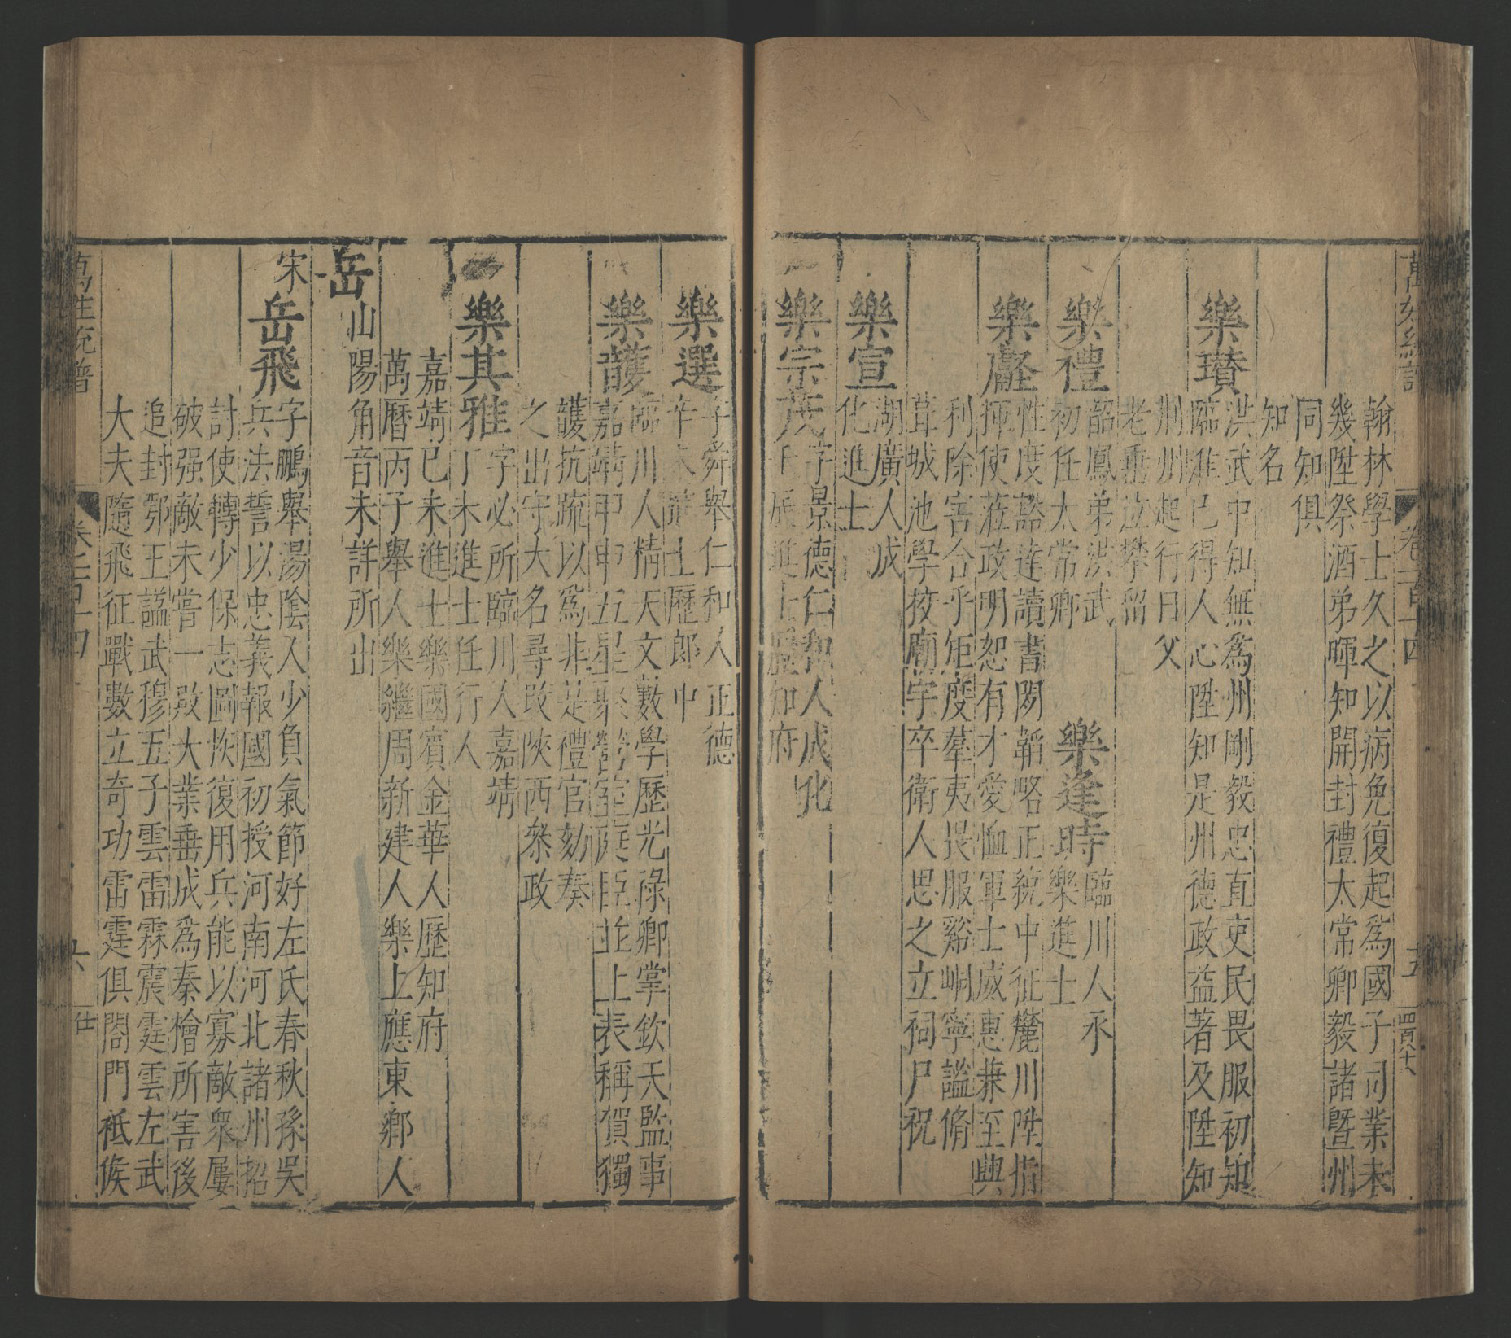 萬姓統譜 卷一百十四 五
翰林學士久之以病免復起爲國子司業未
幾陞祭酒弟暉知開封禮太常卿毅諸暨州
同知俱
知名
樂瓚
洪武中知無爲州剛毅忠直吏民畏服初知
臨淮已得人心陞知是州德政益著及陞知
荆州起行日父
老垂泣攀留
樂禮
韶鳳弟洪武
初任太常卿
樂逢時
臨川人永
樂進士
樂
性度豁達讀書閱韜略正統中征麓川陞指
揮使蒞政明恕有才愛恤軍士威惠兼至興
利除害合乎矩度羣夷畏服谿峒寧謐脩
葺城池學校廟宇卒衛人思之立祠尸祝
樂宣
湖廣人成
化進士
樂宗茂
字景德仁和人成化
進士歷知府
樂選
字舜舉仁和人正德
辛未進士歷郎中
樂頀
臨川人精天文數學歷光祿卿掌欽天監事
嘉靖甲申五星聚營室庭臣並上表稱賀獨
頀抗疏以爲非是禮官劾奏
之出守大名尋改陝西叅政
樂其雅
字必所臨川人嘉靖
丁未進士任行人
嘉靖己未進士樂國賓金華人歷知府
萬曆丙子舉人樂繼周新建人樂上應東鄉人
岳
山陽角音未詳所出
宋
岳飛
字鵬舉湯陰人少負氣節好左氏春秋孫吳
兵法誓以忠義報國初授河南河北諸州招
討使轉少保志圖恢復用兵能以寡敵衆屢
破强敵未嘗一敗大業垂成爲秦檜所害後
追封鄂王謚武穆五子雲雷霖震霆雲左武
大夫隨飛征戰數立奇功雷霆俱閤門祗候
萬姓統譜 卷一百十四 六